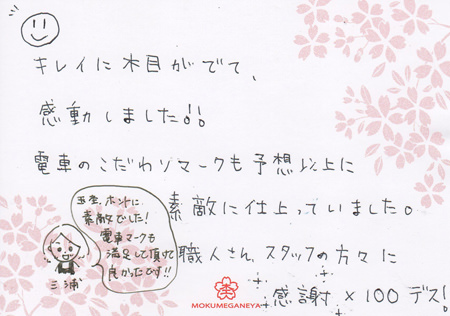 キレイに木目がでて、
感動しました!!
電車のこだわりマークも予想以上に
素敵に仕上っていました。
職人さん、スタッフの方々に
感謝×100デス!
ホントに
素敵でした!
電車マークも
満足して頂けて
良かったです!!
三浦
MOKUMEGANEYA